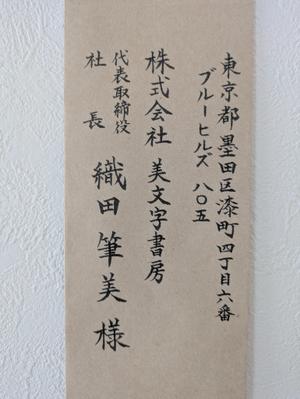 東京都墨田区漆町四丁目六番
ブルーヒルズ 八〇五
株式会社 美文字書房
代表取締役
社長 織田筆美様